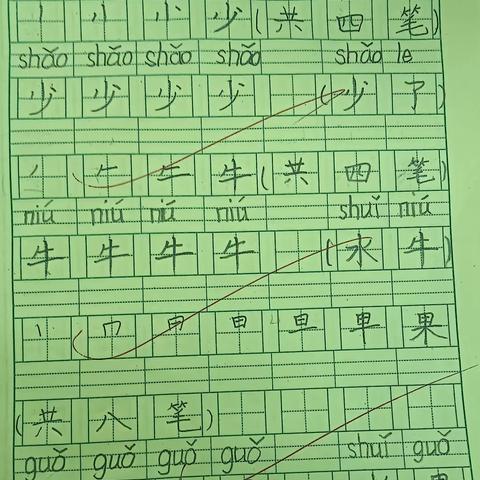 丨 小 小 少 (共 四 笔)
shǎo shǎo shǎo shǎo shǎo le
少 少 少 少 (少 了)
牛 (共 四 笔)
niú niú niú niú shuǐ niú
牛 牛 牛 牛 (水 牛)
丶 冂 日 甲 旦 早 果
(共 八 笔)
guǒ guǒ guǒ guǒ shuǐ guǒ